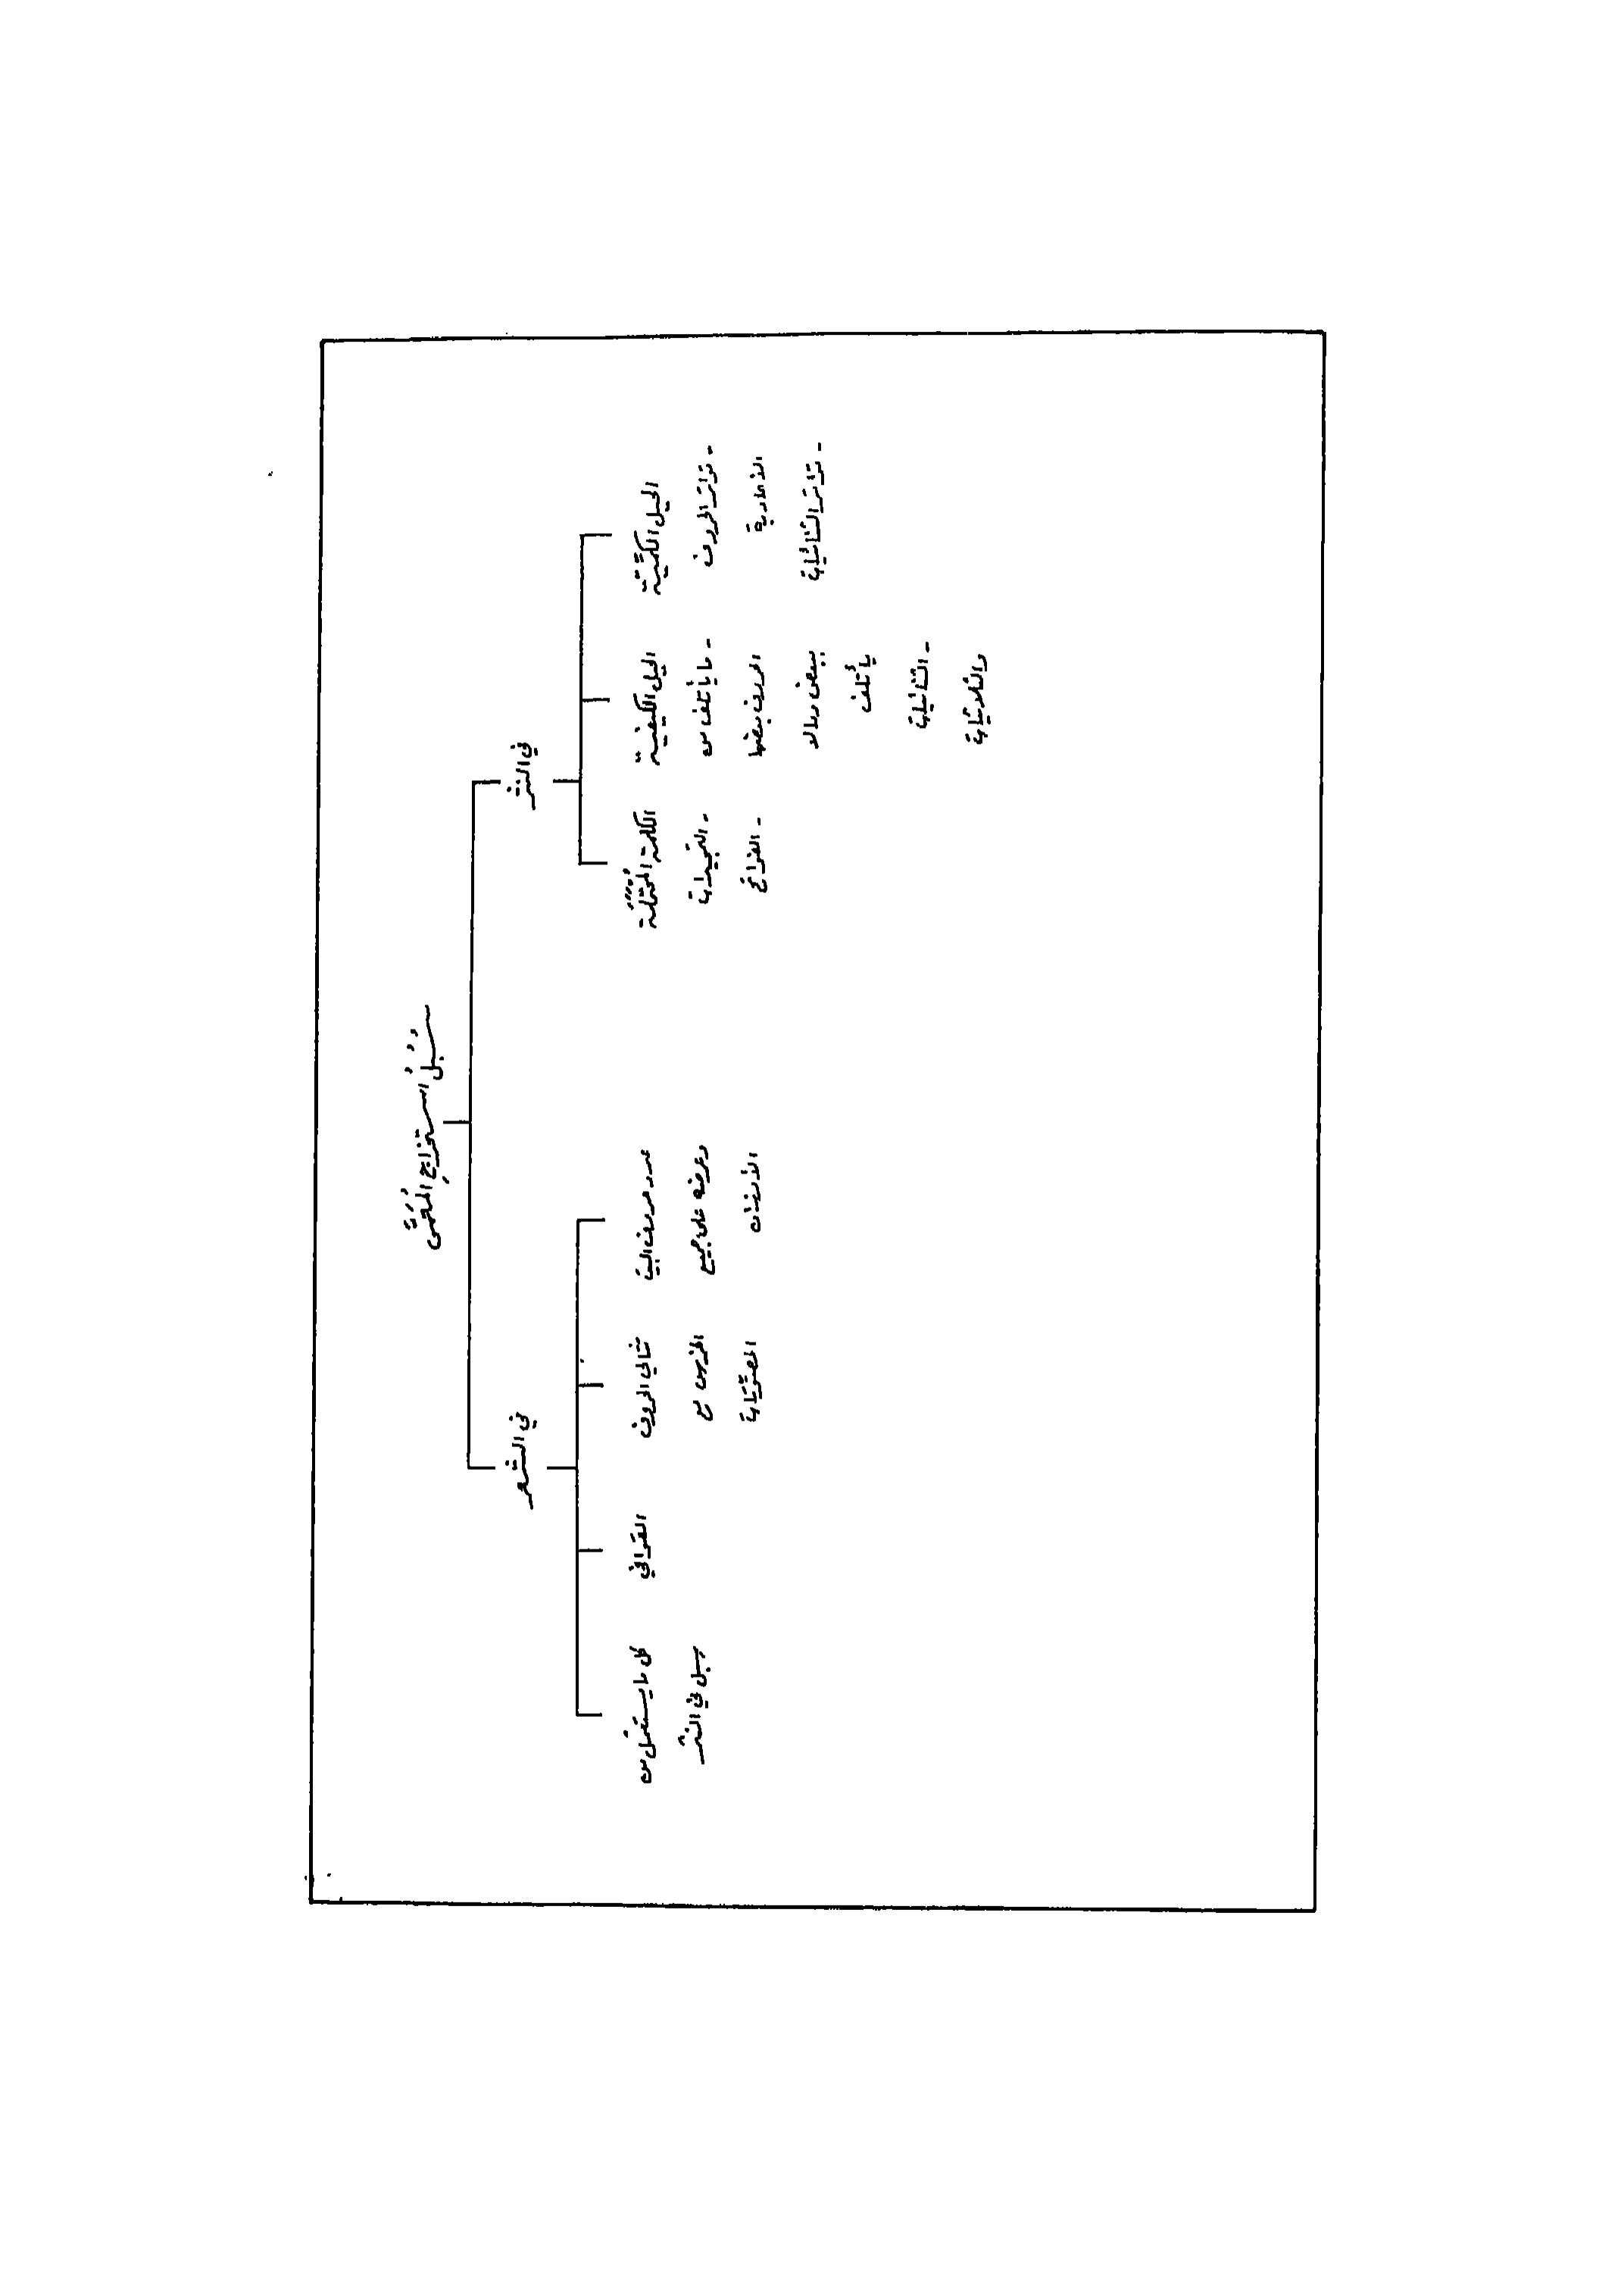 سُبُلُ استخراجِ المُعَمَّى
في النثر
في الشعر
الحيل الكمِّيَّة
- تواتر الحروف
الأحادية
- تواتر الثنائيات
الحيل الكيفية
- ما يأتلف من
الحروف بعضها
ببعض وما لا
يأتلف
- الثنائيات
والثلاثيات
الكلمة المُحْتَمَلَة
- التمجيدات
- الفواتح
عدد حروف البيت
وعرضه على جميع
الأوزان
تتالي الحروف
الخرس مع
المصوّتات
القوافي
كل ما يستعمل من
سبل في النثر